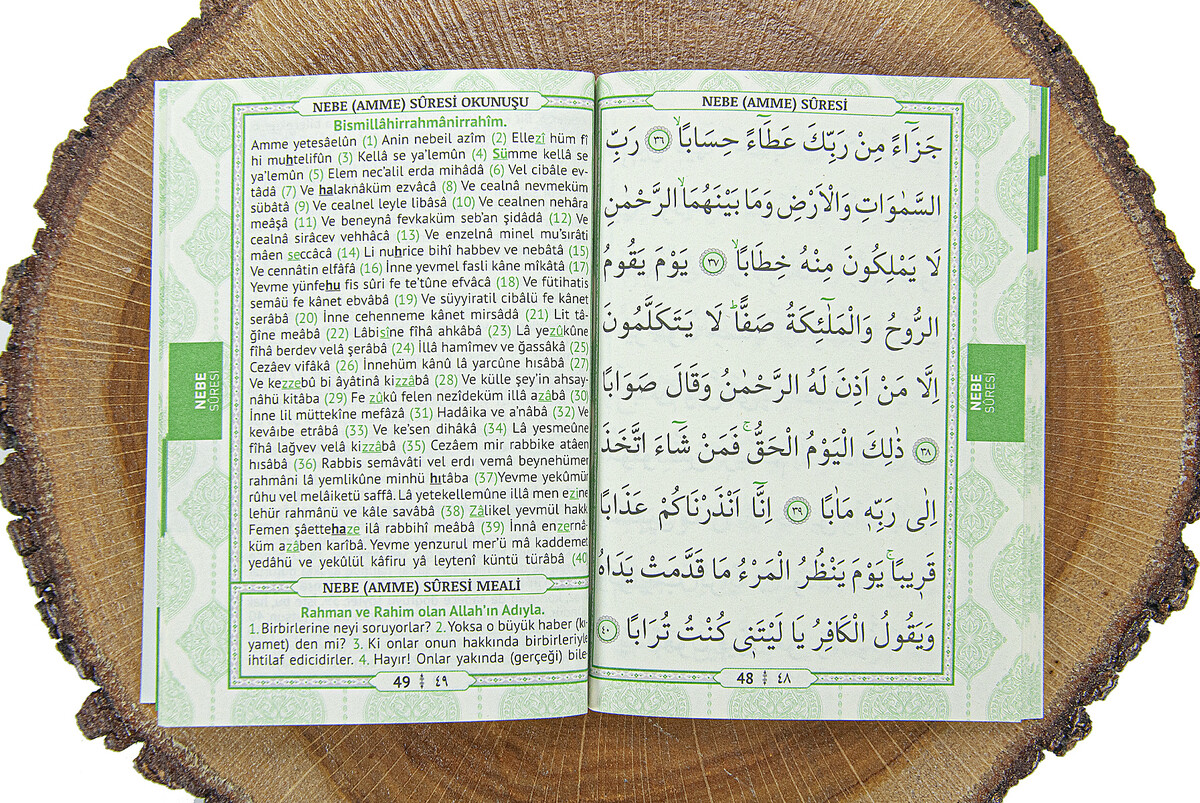 NEBE (AMME) SÛRESİ
جَزَٓاءً مِنْ رَبِّكَ عَطَٓاءً حِسَابًاۙ ﴿٣٦﴾ رَبِّ
السَّمٰوَاتِ وَالْاَرْضِ وَمَا بَيْنَهُمَاۙ الرَّحْمٰنِ
لَا يَمْلِكُونَ مِنْهُ خِطَابًاۙ ﴿٣٧﴾ يَوْمَ يَقُومُ
الرُّوحُ وَالْمَلٰٓئِكَةُ صَفًّاۜ لَا يَتَكَلَّمُونَ
اِلَّا مَنْ اَذِنَ لَهُ الرَّحْمٰنُ وَقَالَ صَوَابًا
﴿٣٨﴾ ذٰلِكَ الْيَوْمُ الْحَقُّۚ فَمَنْ شَٓاءَ اتَّخَذَ
اِلٰى رَبِّه۪ مَاٰبًا ﴿٣٩﴾ اِنَّٓا اَنْذَرْنَاكُمْ عَذَابًا
قَر۪يبًاۚ يَوْمَ يَنْظُرُ الْمَرْءُ مَا قَدَّمَتْ يَدَاهُ
وَيَقُولُ الْكَافِرُ يَا لَيْتَن۪ي كُنْتُ تُرَابًا ﴿٤٠﴾
48 ٤٨
NEBE
SÛRESİ
NEBE (AMME) SÛRESİ OKUNUŞU
Bismillâhirrahmânirrahîm.
Amme yetesâelûn (1) Anin nebeil azîm (2) Ellezî hüm fî
hi muhtelifûn (3) Kellâ se ya'lemûn (4) Sümme kellâ se
ya'lemûn (5) Elem nec'alil erda mihâdâ (6) Vel cibâle ev-
tâdâ (7) Ve halaknâküm ezvâcâ (8) Ve cealnâ nevmeküm
sübâtâ (9) Ve cealnel leyle libâsâ (10) Ve cealnen nehâra
meâşâ (11) Ve beneynâ fevkaküm seb'an şidâdâ (12) Ve
cealnâ sirâcev vehhâcâ (13) Ve enzelnâ minel mu'sırâti
mâen seccâcâ (14) Li nuhrice bihî habbev ve nebâtâ (15)
Ve cennâtin elfâfâ (16) İnne yevmel fasli kâne mîkâtâ (17)
Yevme yünfehu fis sûri fe te'tûne efvâcâ (18) Ve fütihatis
semâü fe kânet ebvâbâ (19) Ve süyyiratil cibâlü fe kânet
serâbâ (20) İnne cehenneme kânet mirsâdâ (21) Lit tâ-
ğîne meâbâ (22) Lâbisîne fîhâ ahkâbâ (23) Lâ yezûkûne
fîhâ berdev velâ şerâbâ (24) İllâ hamîmev ve ğassâkâ (25)
Cezâev vifâkâ (26) İnnehüm kânû lâ yarcûne hısâbâ (27)
Ve kezzebû bi âyâtinâ kizzâbâ (28) Ve külle şey'in ahsay-
nâhü kitâba (29) Fe zûkû felen nezîdeküm illâ azâbâ (30)
İnne lil müttekîne mefâzâ (31) Hadâika ve a'nâbâ (32) Ve
kevâıbe etrâbâ (33) Ve ke'sen dihâkâ (34) Lâ yesmeûne
fîhâ lağvev velâ kizzâbâ (35) Cezâem mir rabbike atâen
hısâbâ (36) Rabbis semâvâti vel erdı vemâ beynehümer
rahmâni lâ yemlikûne minhü hıtâba (37)Yevme yekûmür
rûhu vel melâiketü saffâ. Lâ yetekellemûne illâ men ezine
lehür rahmânü ve kâle savâbâ (38) Zâlikel yevmül hakk
Femen şâettehaze ilâ rabbihî meâbâ (39) İnnâ enzernâ
küm azâben karîbâ. Yevme yenzurul mer'ü mâ kaddemet
yedâhü ve yekûlül kâfiru yâ leytenî küntü türâbâ (40)
NEBE (AMME) SÛRESİ MEALİ
Rahman ve Rahim olan Allah'ın Adıyla.
1. Birbirlerine neyi soruyorlar? 2. Yoksa o büyük haber (kı
yamet) den mi? 3. Ki onlar onun hakkında birbirleriyle
ihtilaf edicidirler. 4. Hayır! Onlar yakında (gerçeği) bile
49 ٤٩
NEBE
SÛRESİ